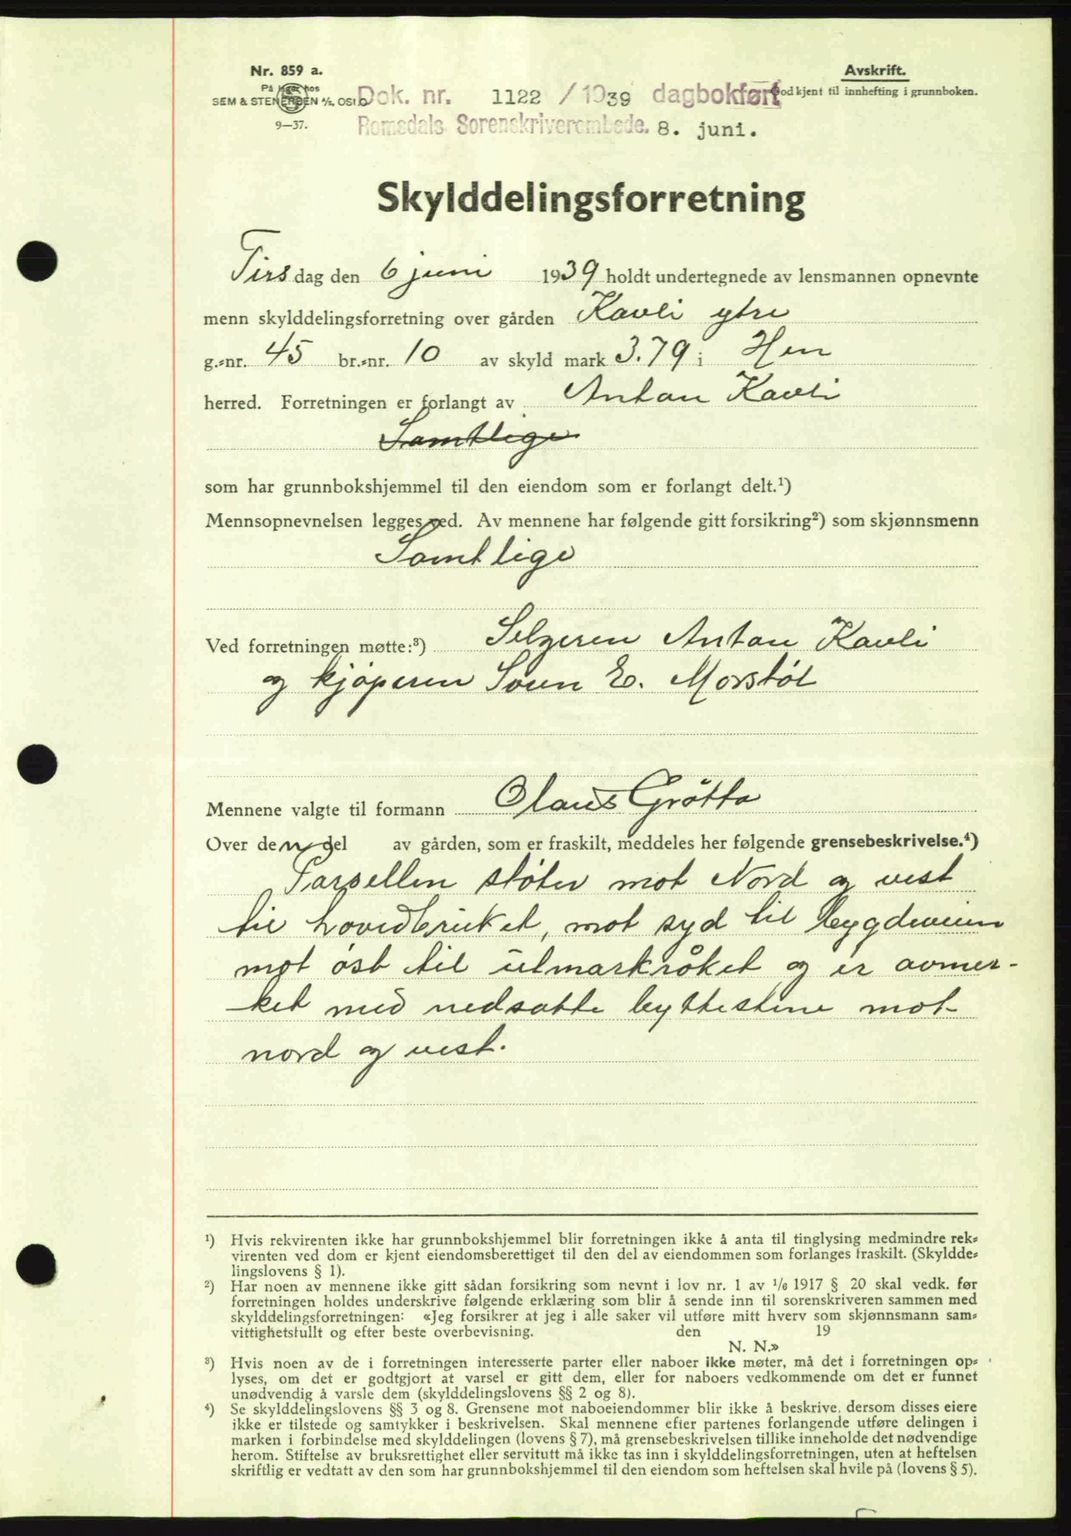 Nr. 859 a.
På lager hos
SEM & STENERSEN A/S, OSLO
9—37.
Avskrift.
Godkjent til innhefting i grunnboken.
Dok. nr. 1122 / 1939 dagbokført
Romsdals Sorenskriverembede. 8. juni.
Skylddelingsforretning
Tirsdag den 6 juni 1939 holdt undertegnede av lensmannen opnevnte
menn skylddelingsforretning over gården Kavli ytre
g.-nr. 45 br.-nr. 10 av skyld mark 3.79 i Hen
herred. Forretningen er forlangt av Anton Kavli
Samtlige
som har grunnbokshjemmel til den eiendom som er forlangt delt.¹)
Mennsopnevnelsen legges ved. Av mennene har følgende gitt forsikring²) som skjønnsmenn
Samtlige
Ved forretningen møtte:³) Selgeren Anton Kavli
og kjöperen Søren E. Morstøl
Mennene valgte til formann Olaus Grötta
Over den del av gården, som er fraskilt, meddeles her følgende grensebeskrivelse.⁴)
Parsellen støter mot Nord og vest
til hovedbruket, mot syd til bygdeveien
mot öst til utmarkråket og er avmer-
-ket med nedsatte byttestene mot
nord og vest.
¹) Hvis rekvirenten ikke har grunnbokshjemmel blir forretningen ikke å anta til tinglysing medmindre rek-
virenten ved dom er kjent eiendomsberettiget til den del av eiendommen som forlanges fraskilt. (Skyldde-
lingslovens § 1).
²) Har noen av mennene ikke gitt sådan forsikring som nevnt i lov nr. 1 av 1/6 1917 § 20 skal vedk. før
forretningen holdes underskrive følgende erklæring som blir å sende inn til sorenskriveren sammen med
skylddelingsforretningen: «Jeg forsikrer at jeg i alle saker vil utføre mitt hverv som skjønnsmann sam-
vittighetsfullt og efter beste overbevisning. den 19
N. N.»
³) Hvis noen av de i forretningen interesserte parter eller naboer ikke møter, må det i forretningen op-
lyses, om det er godtgjort at varsel er gitt dem, eller for naboers vedkommende om det er funnet
unødvendig å varsle dem (skylddelingslovens §§ 2 og 8).
⁴) Se skylddelingslovens §§ 3 og 8. Grensene mot naboeiendommer blir ikke å beskrive, dersom disses eiere
ikke er tilstede og samtykker i beskrivelsen. Skal mennene efter partenes forlangende utføre delingen i
marken i forbindelse med skylddelingen (lovens § 7), må grensebeskrivelsen tillike inneholde det nødvendige
herom. Stiftelse av bruksrettighet eller servitutt må ikke tas inn i skylddelingsforretningen, uten at heftelsen
skriftlig er vedtatt av den som har grunnbokshjemmel til den eiendom som heftelsen skal hvile på (lovens § 5).